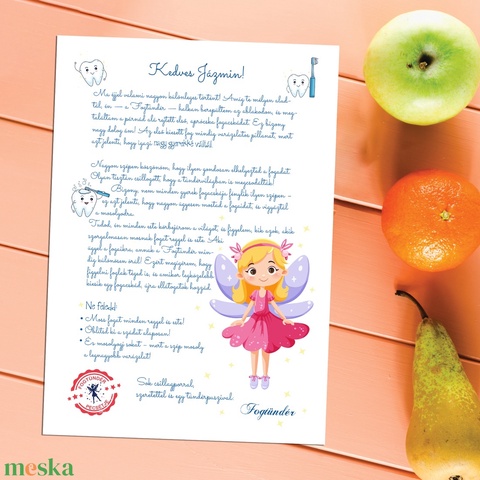 Kedves Jázmin!
Ma éjjel valami nagyon különleges történt! Amíg te mélyen alud-
tál, én — a Fogtündér — halkan berepültem az ablakodon, és meg-
találtam a párnád alá rejtett első, apró fogacskádat. Ez bizony
nagy dolog ám! Az első kiesett fog mindig varázslatos pillanat, mert
azt jelenti, hogy igazi nagy gyerekké váltál!
Nagyon szépen köszönöm, hogy ilyen gondosan elhelyezted a fogadat.
Olyan tisztán csillogott, hogy a tündérvilágban is megcsodálták!
Bizony, nem minden gyerek fogacskája fénylik ilyen szépen -
ez azt jelenti, hogy nagyon ügyesen mostad a fogaidat, és vigyáztál
a mosolyodra.
Tudod, én minden este körbejárom a világot, és figyelem, kik azok, akik
szorgalmasan mosnak fogat reggel és este. Aki
ügyel a fogaira, annak a Fogtündér min-
dig különösen örül! Ezért megígérem, hogy
figyelni foglak téged is, és amikor legközelebb
kiesik egy fogacskád, újra ellátogatok hozzád.
Ne feledd:
• Moss fogat minden reggel és este!
• Öblítsd ki a szádat alaposan!
• És mosolyogj sokat - mert a szép mosoly
a legnagyobb varázslat!
Sok csillagporral,
szeretettel és egy tündérpuszival:
Fogtündér
FOGTÜNDÉR
PECSÉTJE
meska